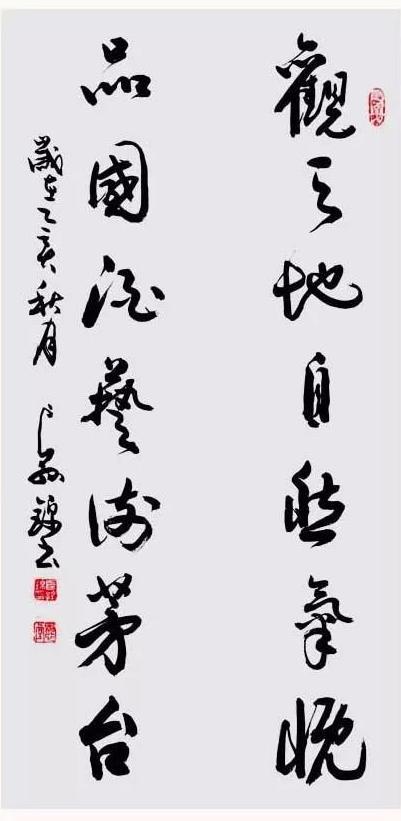 觀天地自然氣
品國酒藝術茅台
歲在亥秋月 錦書